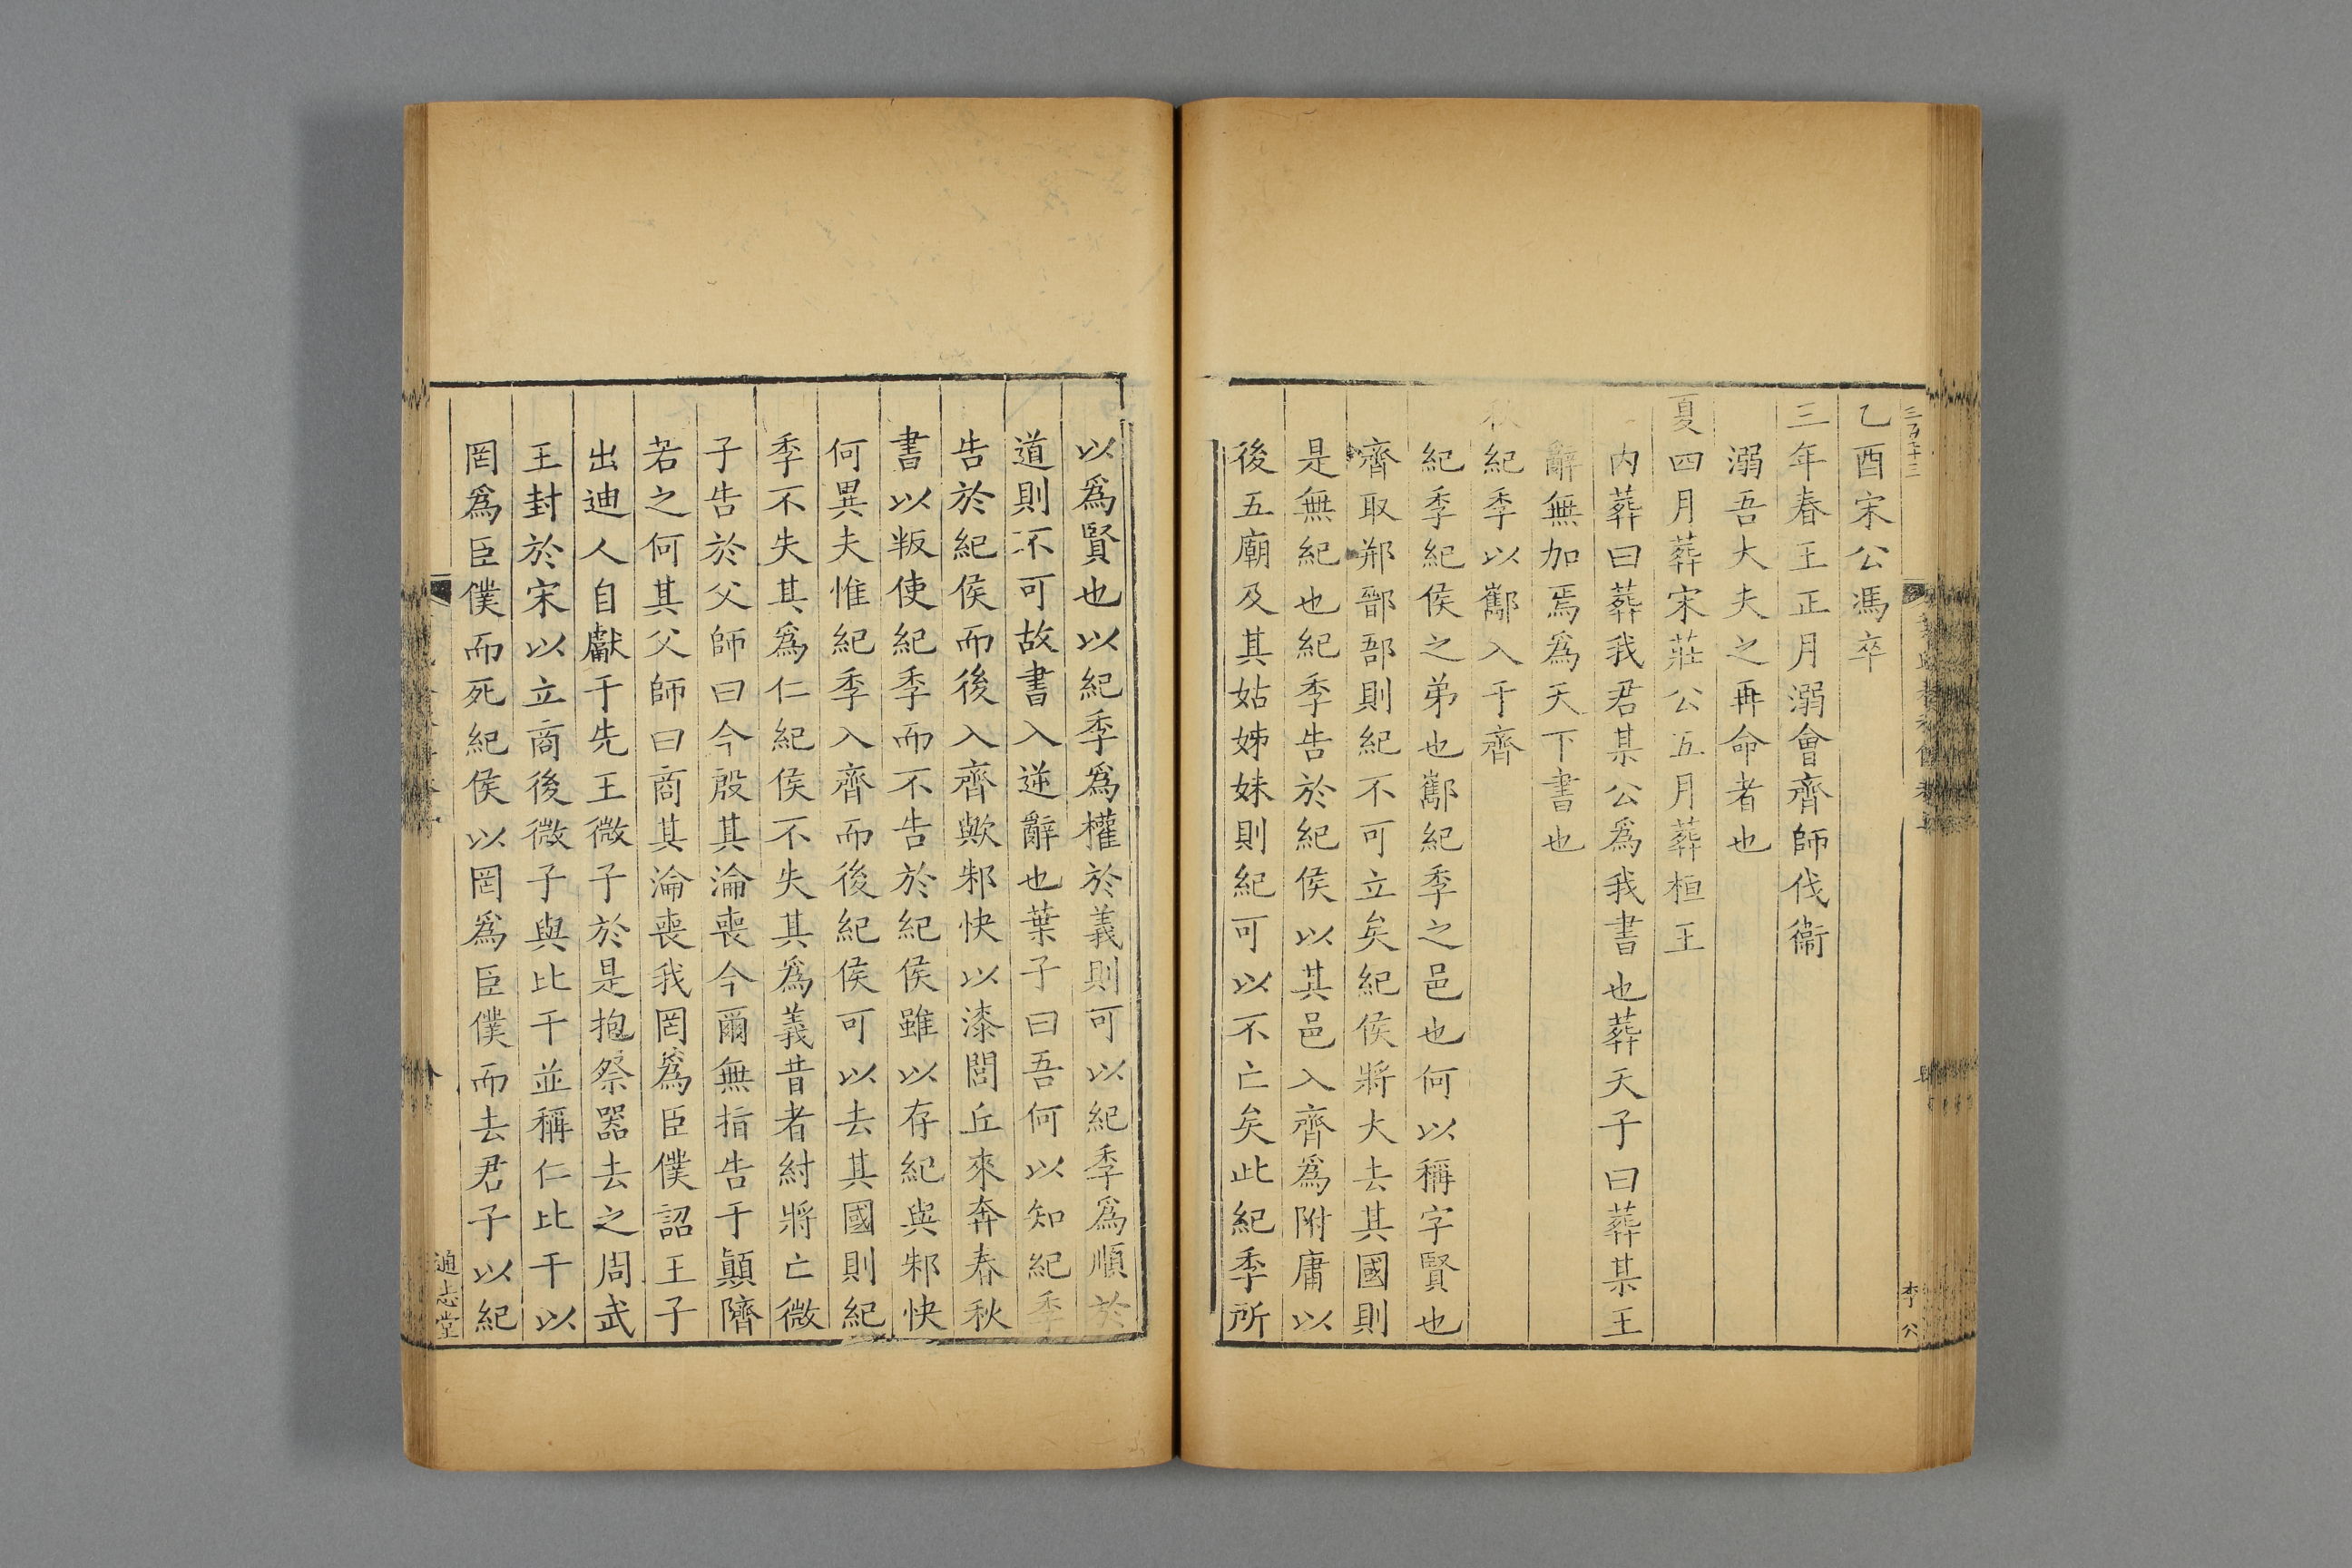 乙酉宋公馮卒
三年春王正月溺會齊師伐衞
溺吾大夫之再命者也
夏四月葬宋莊公五月葬桓王
内葬曰葬我君某公爲我書也葬天子曰葬某王
辭無加焉爲天下書也
秋紀季以酅入于齊
紀季紀侯之弟也酅紀季之邑也何以稱字賢也
齊取郱鄑郚則紀不可立矣紀侯將大去其國則
是無紀也紀季告於紀侯以其邑入齊爲附庸以
後五廟及其姑姊妹則紀可以不亡矣此紀季所
以爲賢也以紀季爲權於義則可以紀季爲順於
道則不可故書入逆辭也葉子曰吾何以知紀季
告於紀侯而後入齊歟邾快以漆閭丘來奔春秋
書以叛使紀季而不告於紀侯雖以存紀與邾快
何異夫惟紀季入齊而後紀侯可以去其國則紀
季不失其爲仁紀侯不失其爲義昔者紂將亡微
子告於父師曰今殷其淪喪今爾無指告于顚隮
若之何其父師曰商其淪喪我罔爲臣僕詔王子
出迪人自獻于先王微子於是抱祭器去之周武
王封於宋以立商後微子與比干並稱仁比干以
罔爲臣僕而死紀侯以罔爲臣僕而去君子以紀
通志堂